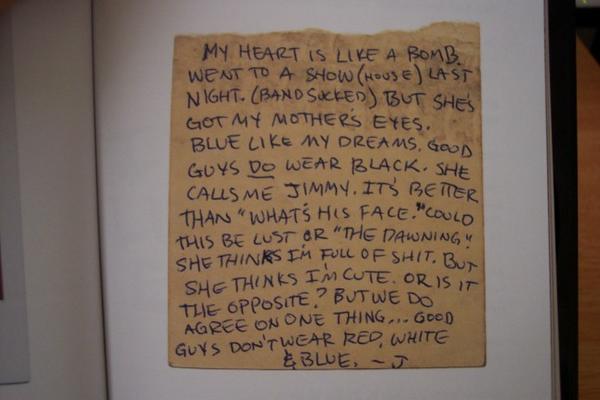 MY HEART IS LIKE A BOMB.
WENT TO A SHOW (HOUSE) LAST
NIGHT. (BAND SUCKED) BUT SHE'S
GOT MY MOTHER'S EYES.
BLUE LIKE MY DREAMS. GOOD
GUYS DO WEAR BLACK. SHE
CALLS ME JIMMY. IT'S BETTER
THAN "WHAT'S HIS FACE." COULD
THIS BE LUST OR "THE DAWNING".
SHE THINKS I'M FULL OF SHIT. BUT
SHE THINKS I'M CUTE. OR IS IT
THE OPPOSITE? BUT WE DO
AGREE ON ONE THING... GOOD
GUYS DON'T WEAR RED, WHITE
& BLUE. - J